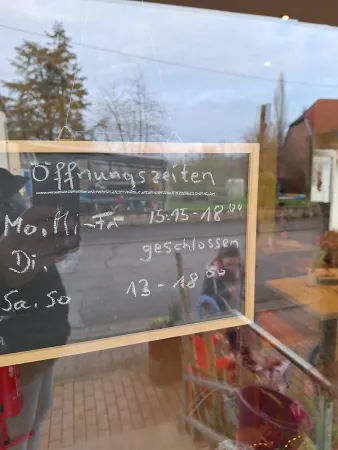 Öffnungszeiten
Mo, Mi-Fr 15:15-18.00
Di. geschlossen
Sa. So 13-18.00